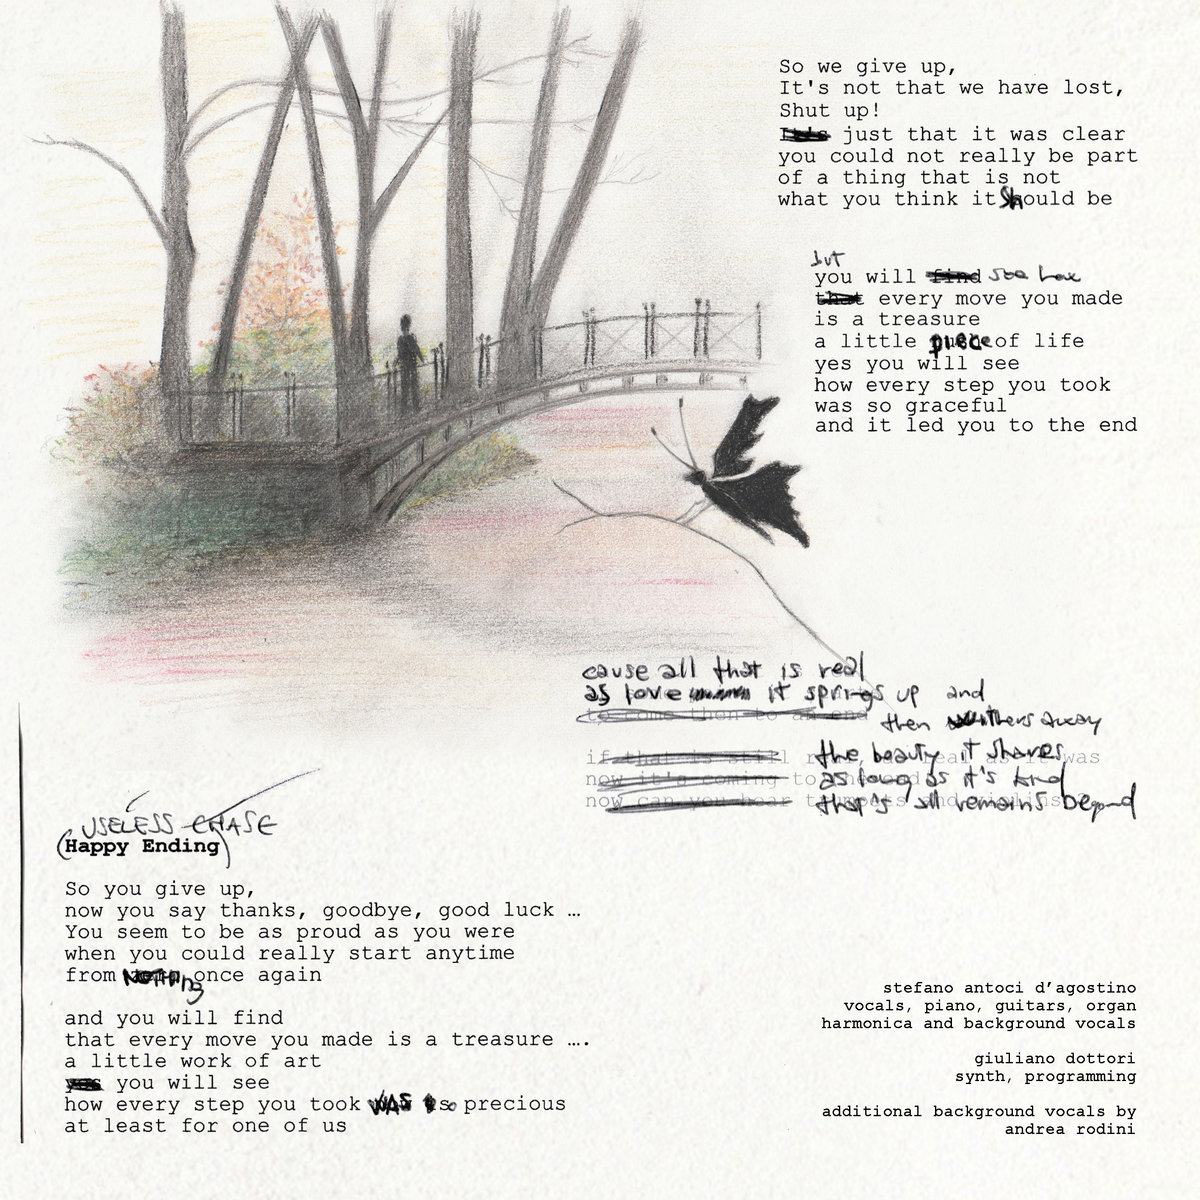 USELESS CHASE
(Happy Ending)
So you give up,
now you say thanks, goodbye, good luck …
You seem to be as proud as you were
when you could really start anytime
from NOTHING once again
and you will find
that every move you made is a treasure ….
a little work of art
yes you will see
how every step you took WAS so precious
at least for one of us
So we give up,
It's not that we have lost,
Shut up!
It's just that it was clear
you could not really be part
of a thing that is not
what you think it Should be
but
you will find see how
that every move you made
is a treasure
a little piece of life
yes you will see
how every step you took
was so graceful
and it led you to the end
cause all that is real
as love it springs up and
to come then to an end
then withers away
if that is still as it was
the beauty it shares
now it's coming to
as long as it's
now can you hear trumpets and violins
that's all remains beyond
stefano antoci d’agostino
vocals, piano, guitars, organ
harmonica and background vocals
giuliano dottori
synth, programming
additional background vocals by
andrea rodini